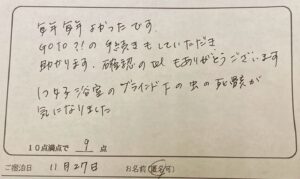 毎年毎年よかったです
GOTO??の手続きもしていただき
助かります。確認のTELもありがとうございます
1つ女子浴室のブラインド下の虫の死骸が
気になりました
10点満点で 9 点
ご宿泊日 11月27日 お名前(匿名可)